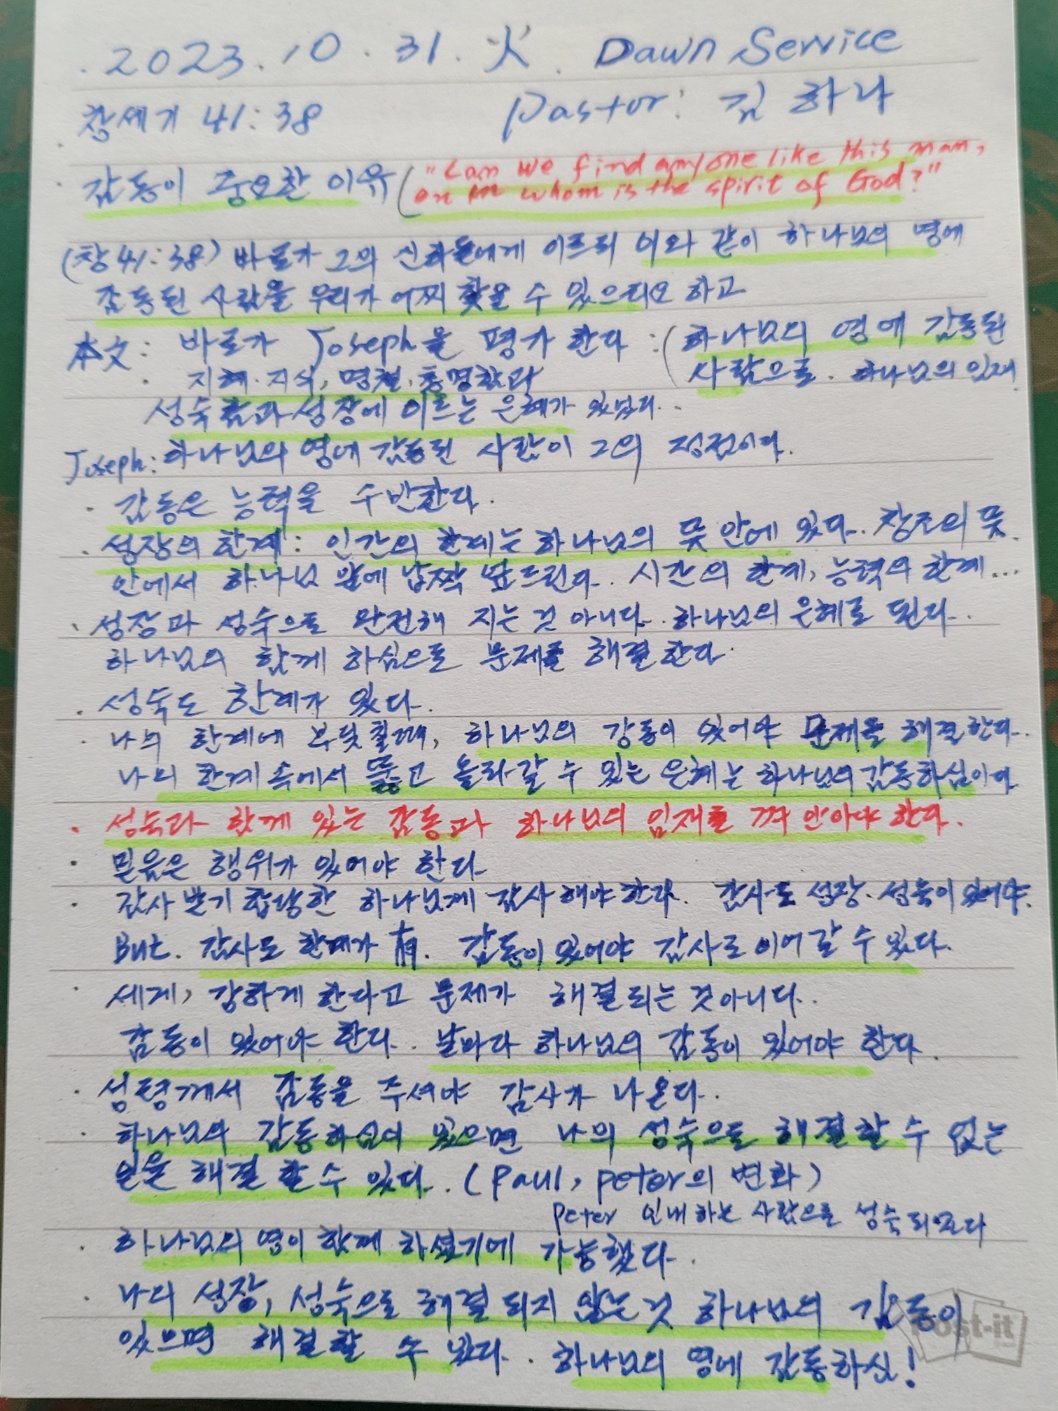 . 2023. 10. 31. 火. Dawn Service
창세기 41:38 Pastor: 김 하나
· 감동이 중요한 이유 ("Can we find anyone like this man,
on whom is the spirit of God?"
(창 41:38) 바로가 그의 신하들에게 이르되 이와 같이 하나님의 영에
감동된 사람을 우리가 어찌 찾을 수 있으리요 하고
本文: 바로가 Joseph을 평가 한다: (하나님의 영에 감동된
사람으로. 하나님의 임재.
· 지혜·지식, 명철·총명함과
성숙함과 성장에 이르는 은혜가 있었다..
Joseph: 하나님의 영에 감동된 사람이 그의 정점이다.
· 감동은 능력을 수반한다.
· 성장의 한계: 인간의 한계는 하나님의 뜻 안에 있다. 창조의 뜻.
안에서 하나님 앞에 납짝 엎드린다. 시간의 한계, 능력의 한계...
· 성장과 성숙으로 완전해 지는 것 아니다. 하나님의 은혜로 된다..
하나님의 함께 하심으로 문제를 해결한다.
· 성숙도 한계가 있다.
· 나의 한계에 부딪칠때, 하나님의 감동이 있어야 문제를 해결한다..
나의 한계 속에서 뚫고 올라갈 수 있는 은혜는 하나님의 감동하심이다
· 성숙과 함께 있는 감동과 하나님의 임재를 껴 안아야 한다.
· 믿음은 행위가 있어야 한다
· 감사 받기 합당한 하나님께 감사해야한다. 감사도 성장·성숙이 있어야.
But. 감사도 한계가 有. 감동이 있어야 감사로 이어갈 수 있다.
· 세게, 강하게 한다고 문제가 해결되는 것아니다..
감동이 있어야 한다.. 날마다 하나님의 감동이 있어야 한다.
· 성령께서 감동을 주셔야 감사가 나온다.
· 하나님의 감동하심이 있으면 나의 성숙으로 해결할 수 없는
일을 해결 할 수 있다.. (Paul, peter의 변화)
peter 인내하는 사람으로 성숙되었다
· 하나님의 영이 함께 하셨기에 가능했다.
· 나의 성장, 성숙으로 해결 되지 않는 것 하나님의 감동이
있으면 해결할 수 있다. · 하나님의 영에 감동하심!
Post-it